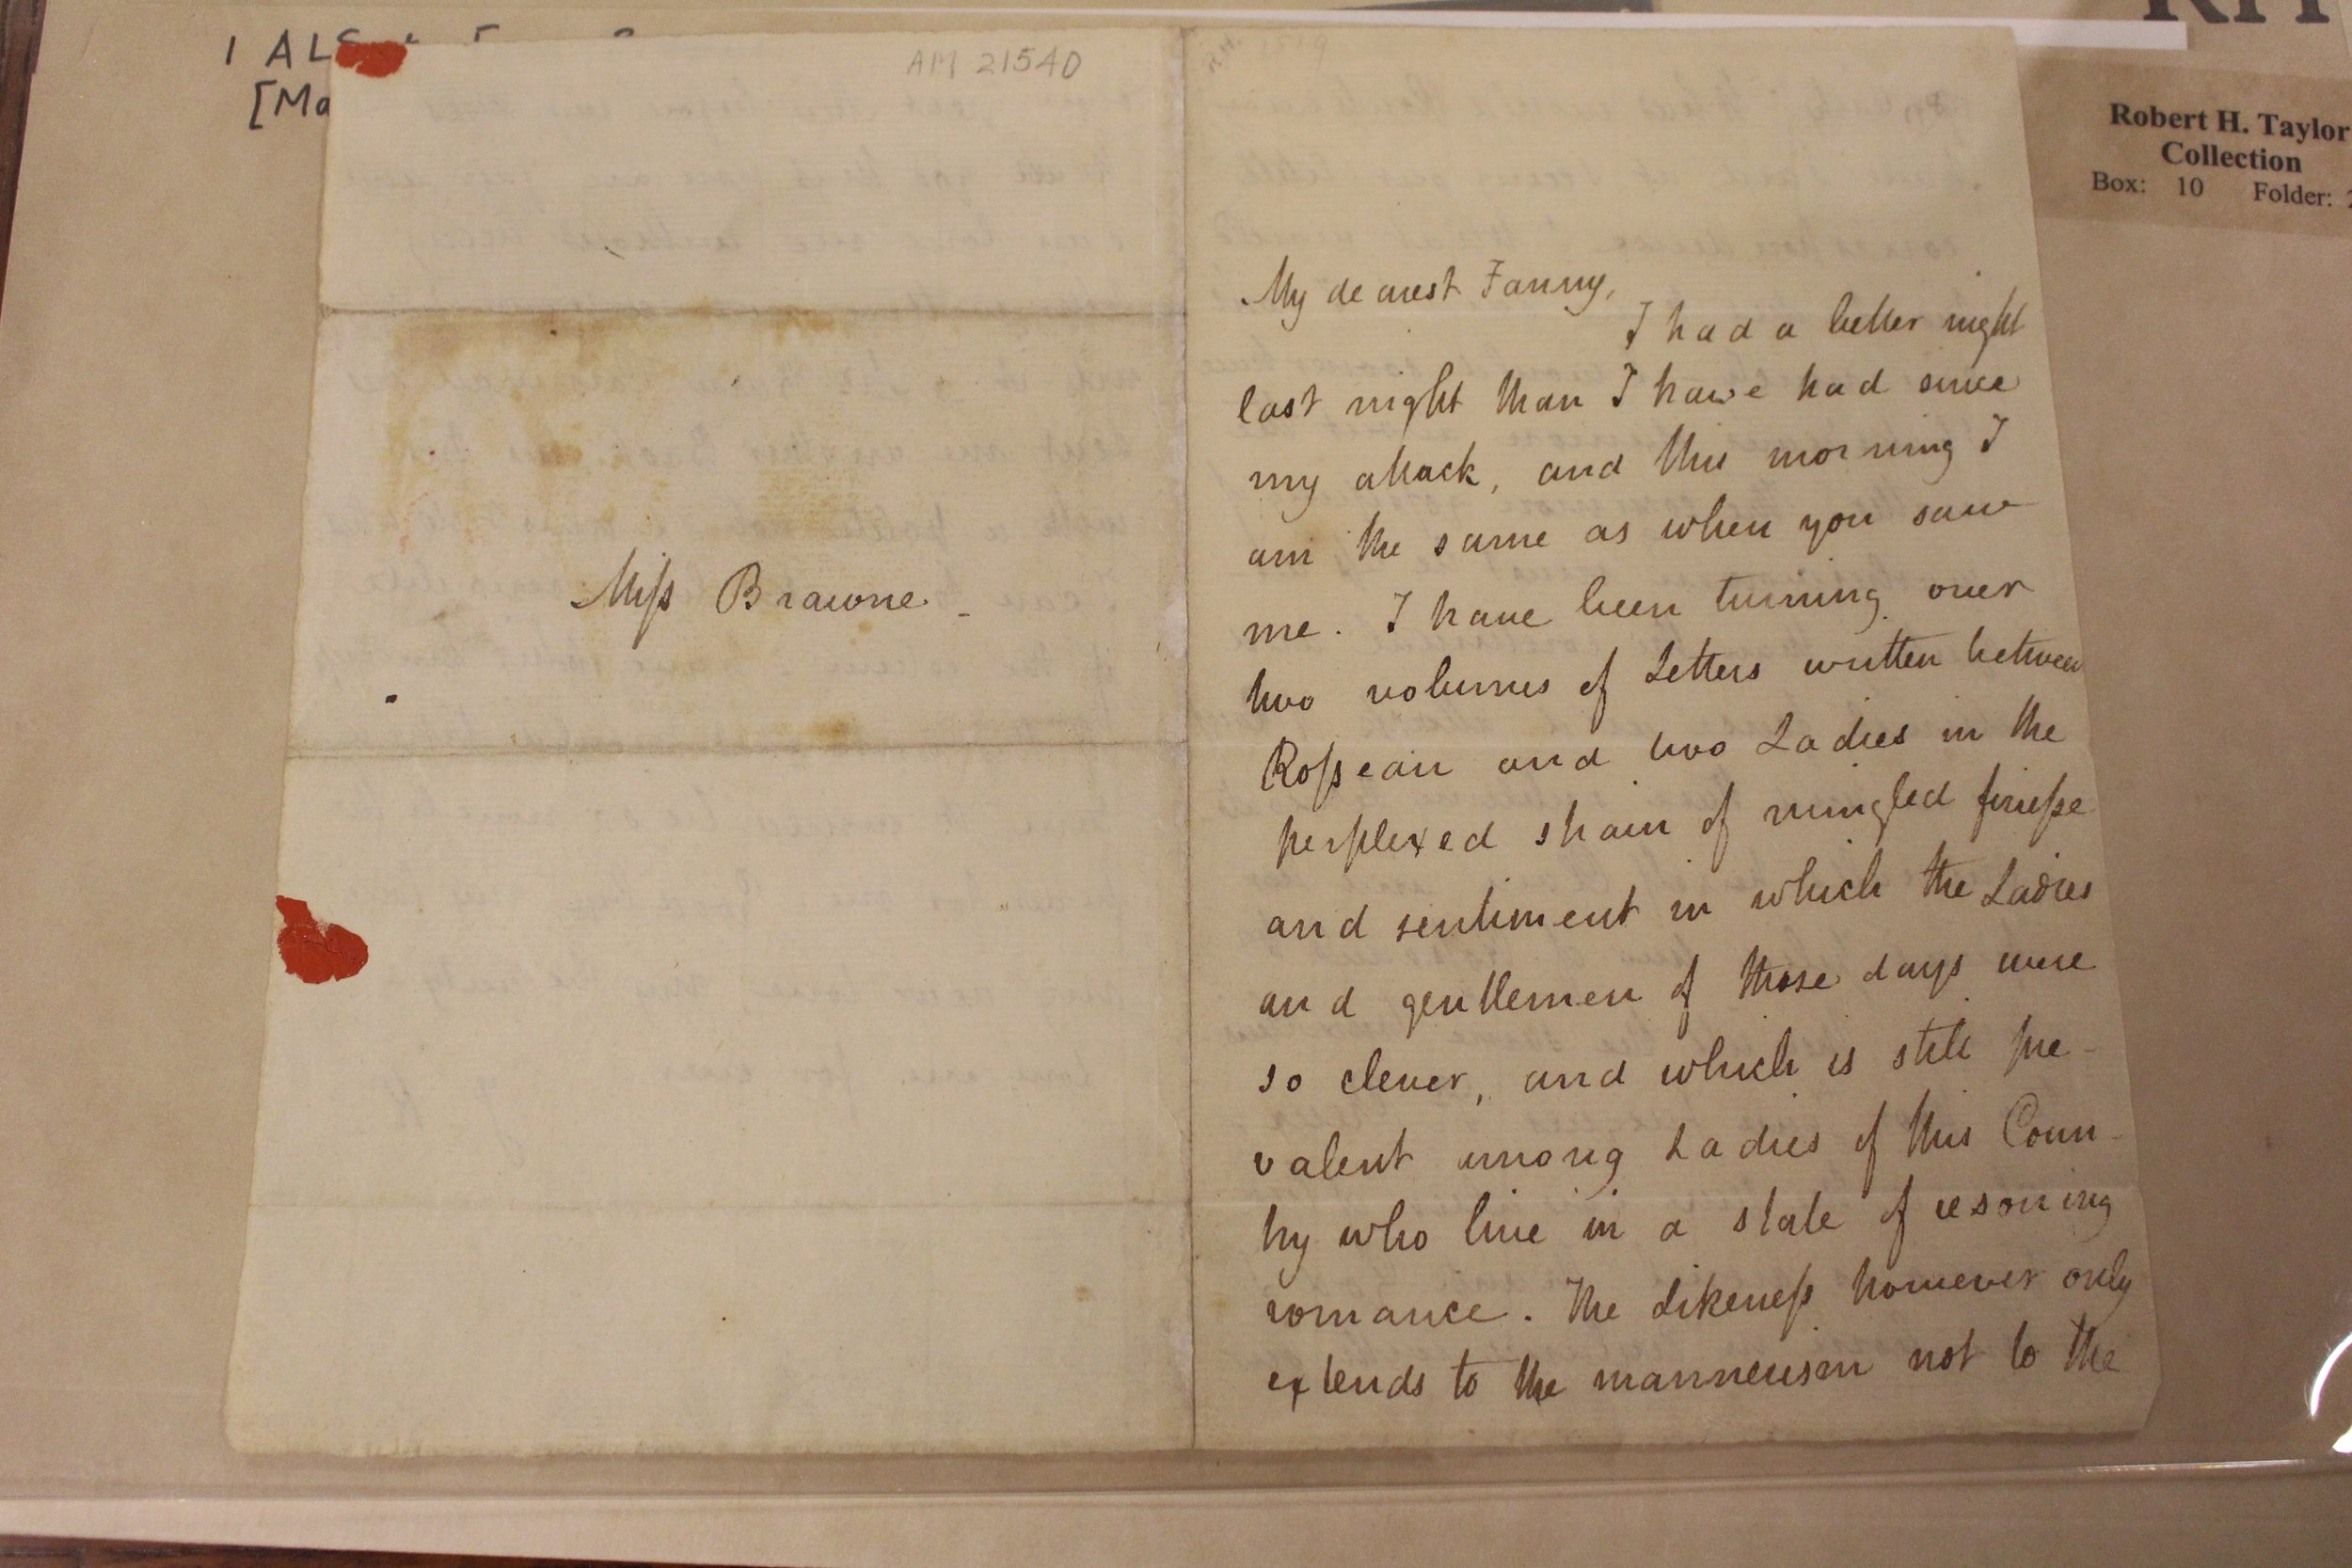 1 ALS
[Ma
AM 21540
Robert H. Taylor
Collection
Box: 10 Folder:
Miss Brawne.
My dearest Fanny,
I had a better night
last night than I have had since
my attack, and this morning I
am the same as when you saw
me. I have been turning over
two volumes of Letters written between
Rosseau and two Ladies in the
perplexed strain of mingled finesse
and sentiment in which the Ladies
and gentlemen of those days were
so clever, and which is still pre-
valent among Ladies of this Coun-
try who live in a state of resoning
romance. The Likeness however only
extends to the mannerism not to the